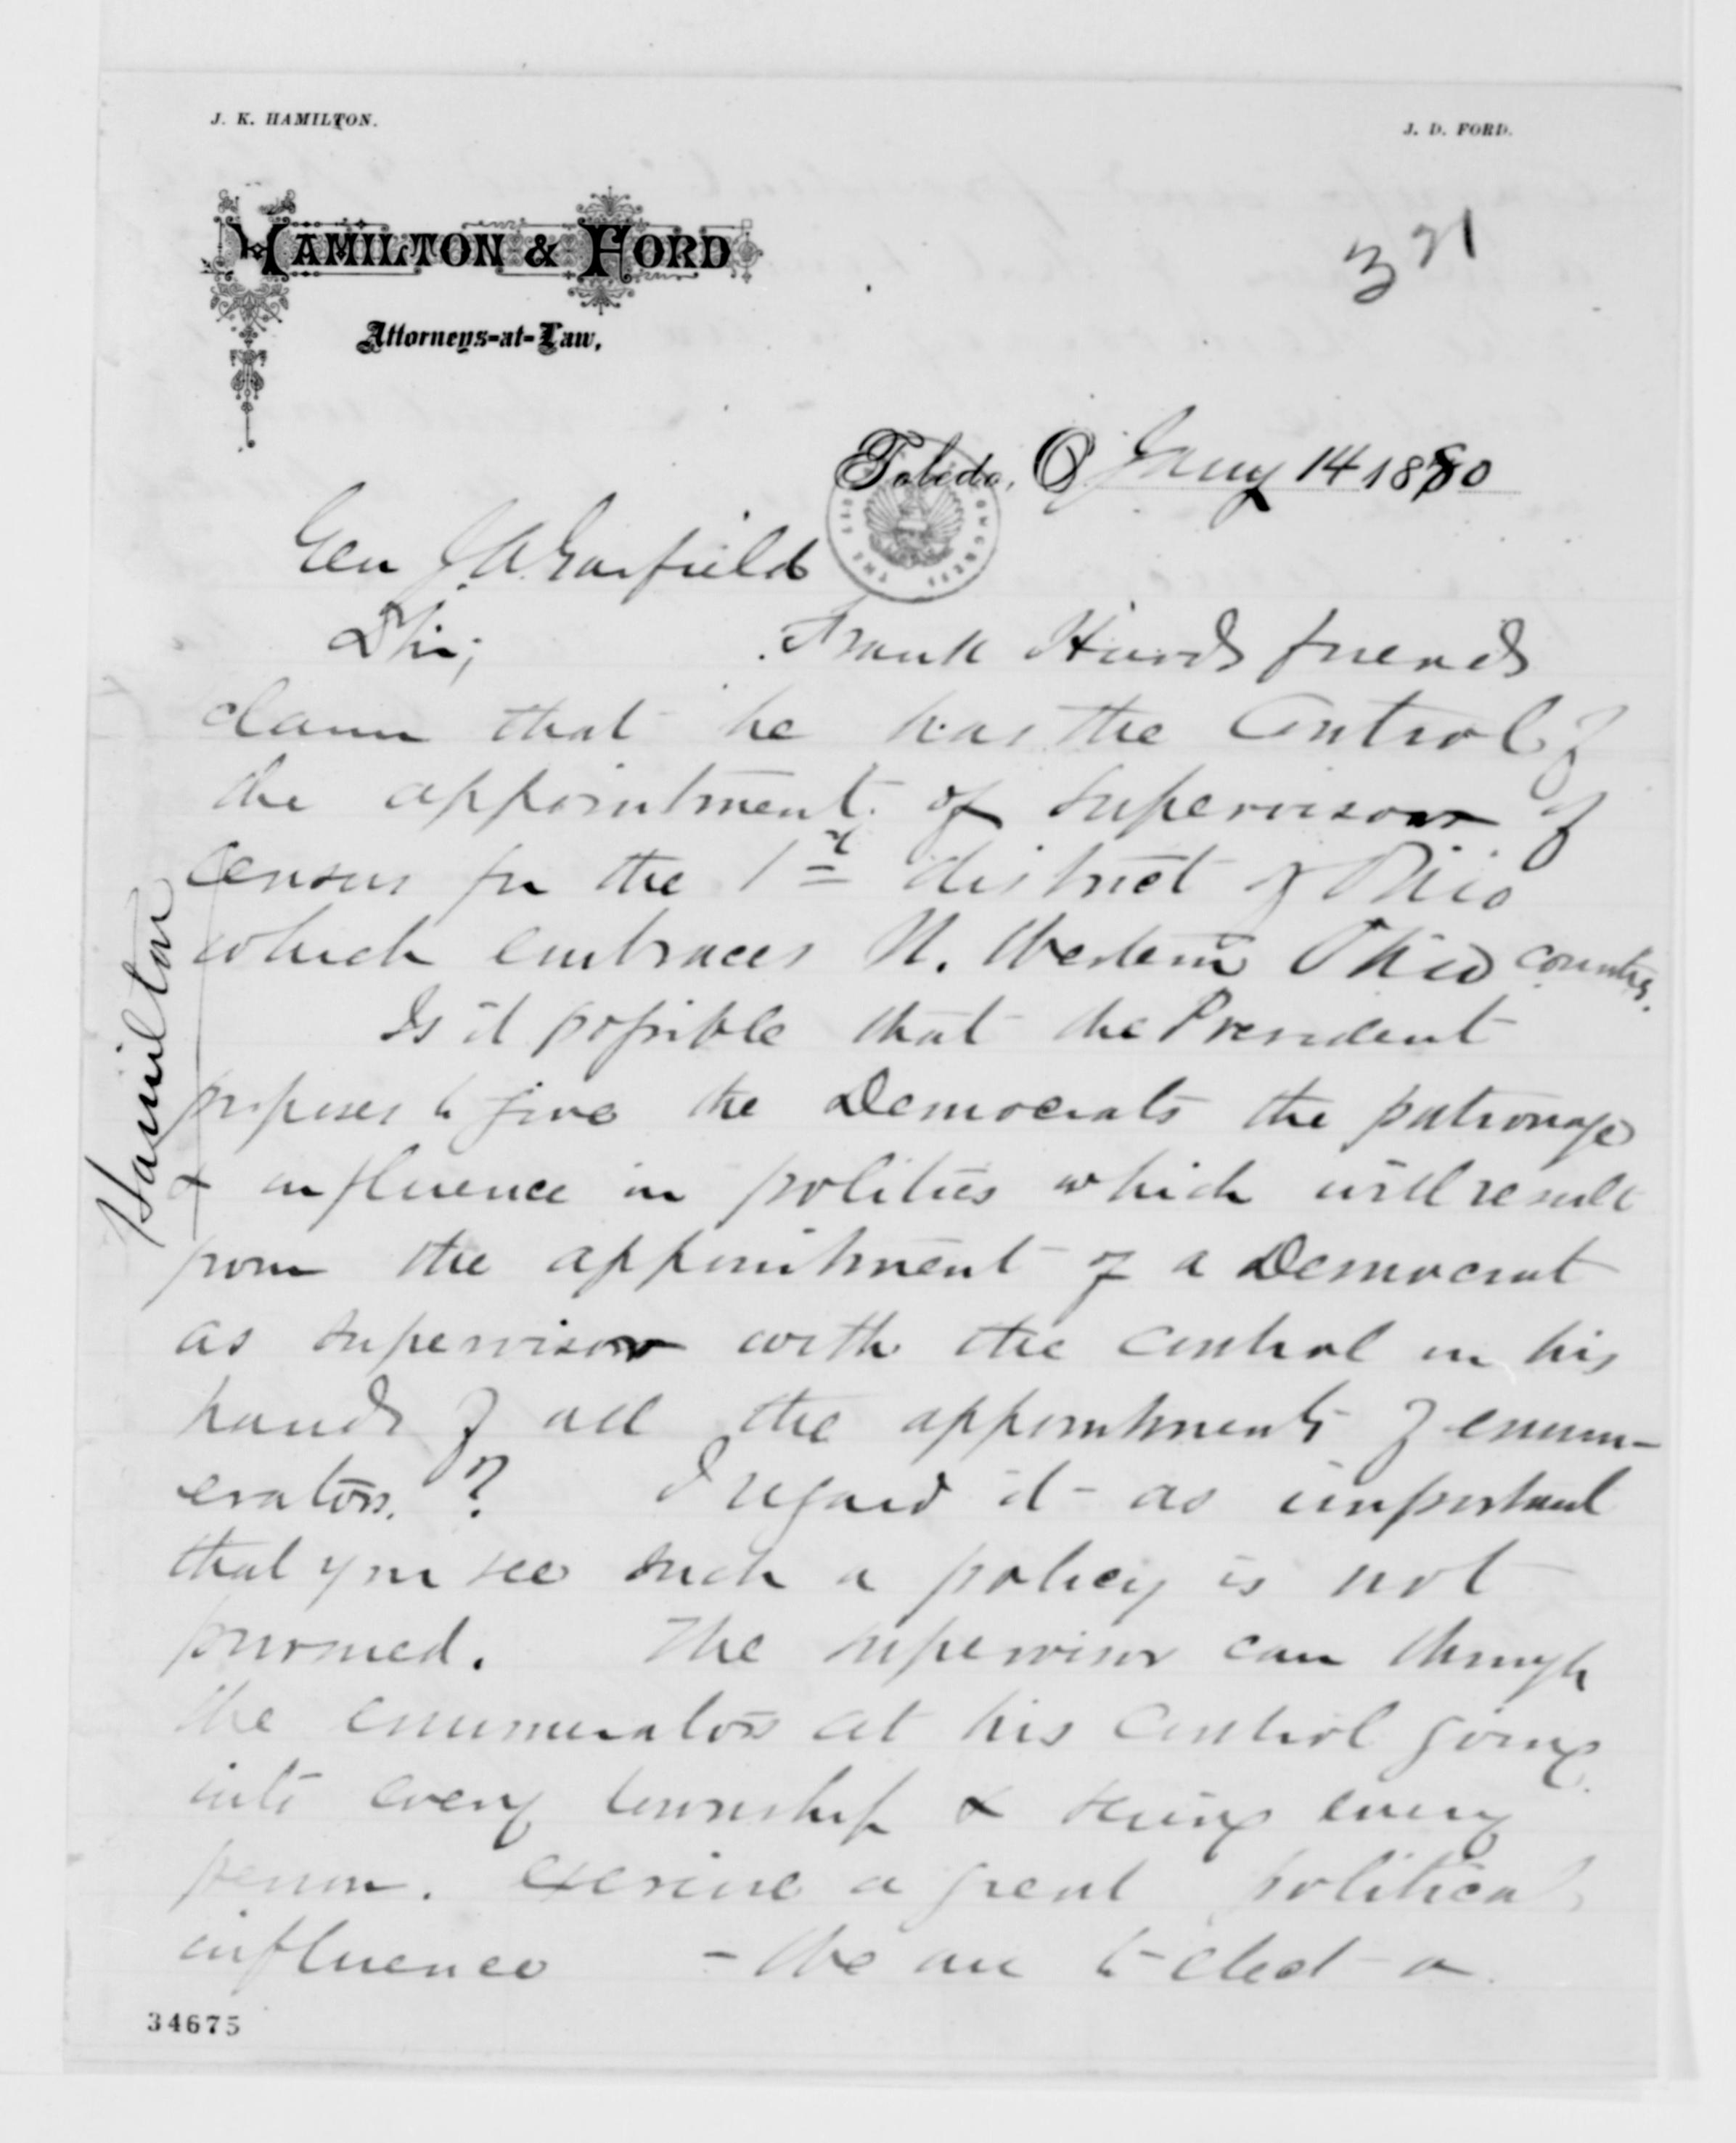 J. K. HAMILTON.
J. D. FORD.
HAMILTON & FORD
Attorneys-at-Law,
321
Toledo, O Jany 14 1880
Gen J. A. Garfield
D Sir;
Frank Hurds friends
claim that he has the control of
the appointment of supervisor of
census for the 1st district of Ohio
which embraces N. Western Ohio counties.
Is it possible that the President
proposes to give the Democrats the patronage
& influence in politics which will result
from the appointment of a Democrat
as supervisor with the control in his
hands of all the appointments of enum-
erators. ? I regard it as important
that you see such a policy is not
pursued. The supervisor can through
the enumerators at his control going
into every township & seeing every
person. exercise a great political
influence - We are to elect a
Hamilton
34675